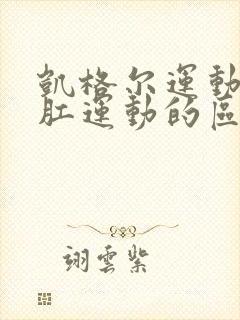 凱格尔運動
肛運動的區
翊雲紫